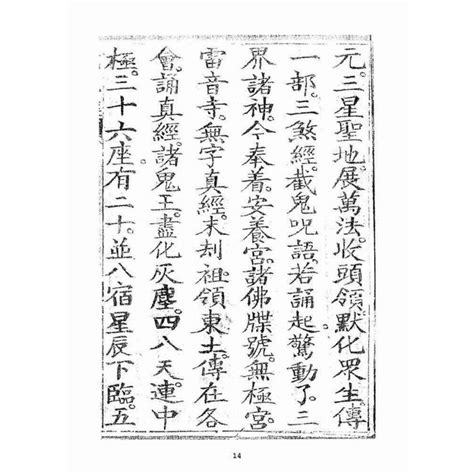 元。三星聖地展萬法。收頭領。默化眾生傳
一部。三煞經。截鬼呪語。若誦起驚動了。三
界諸神。今奉着。安養宮。諸佛牒號。無極宮
雷音寺。無字真經。末刼祖領東土。傳在各
會誦真經。諸鬼王盡化灰塵。四八天連中
極。三十六座有二十。並八宿星辰下臨。五
14